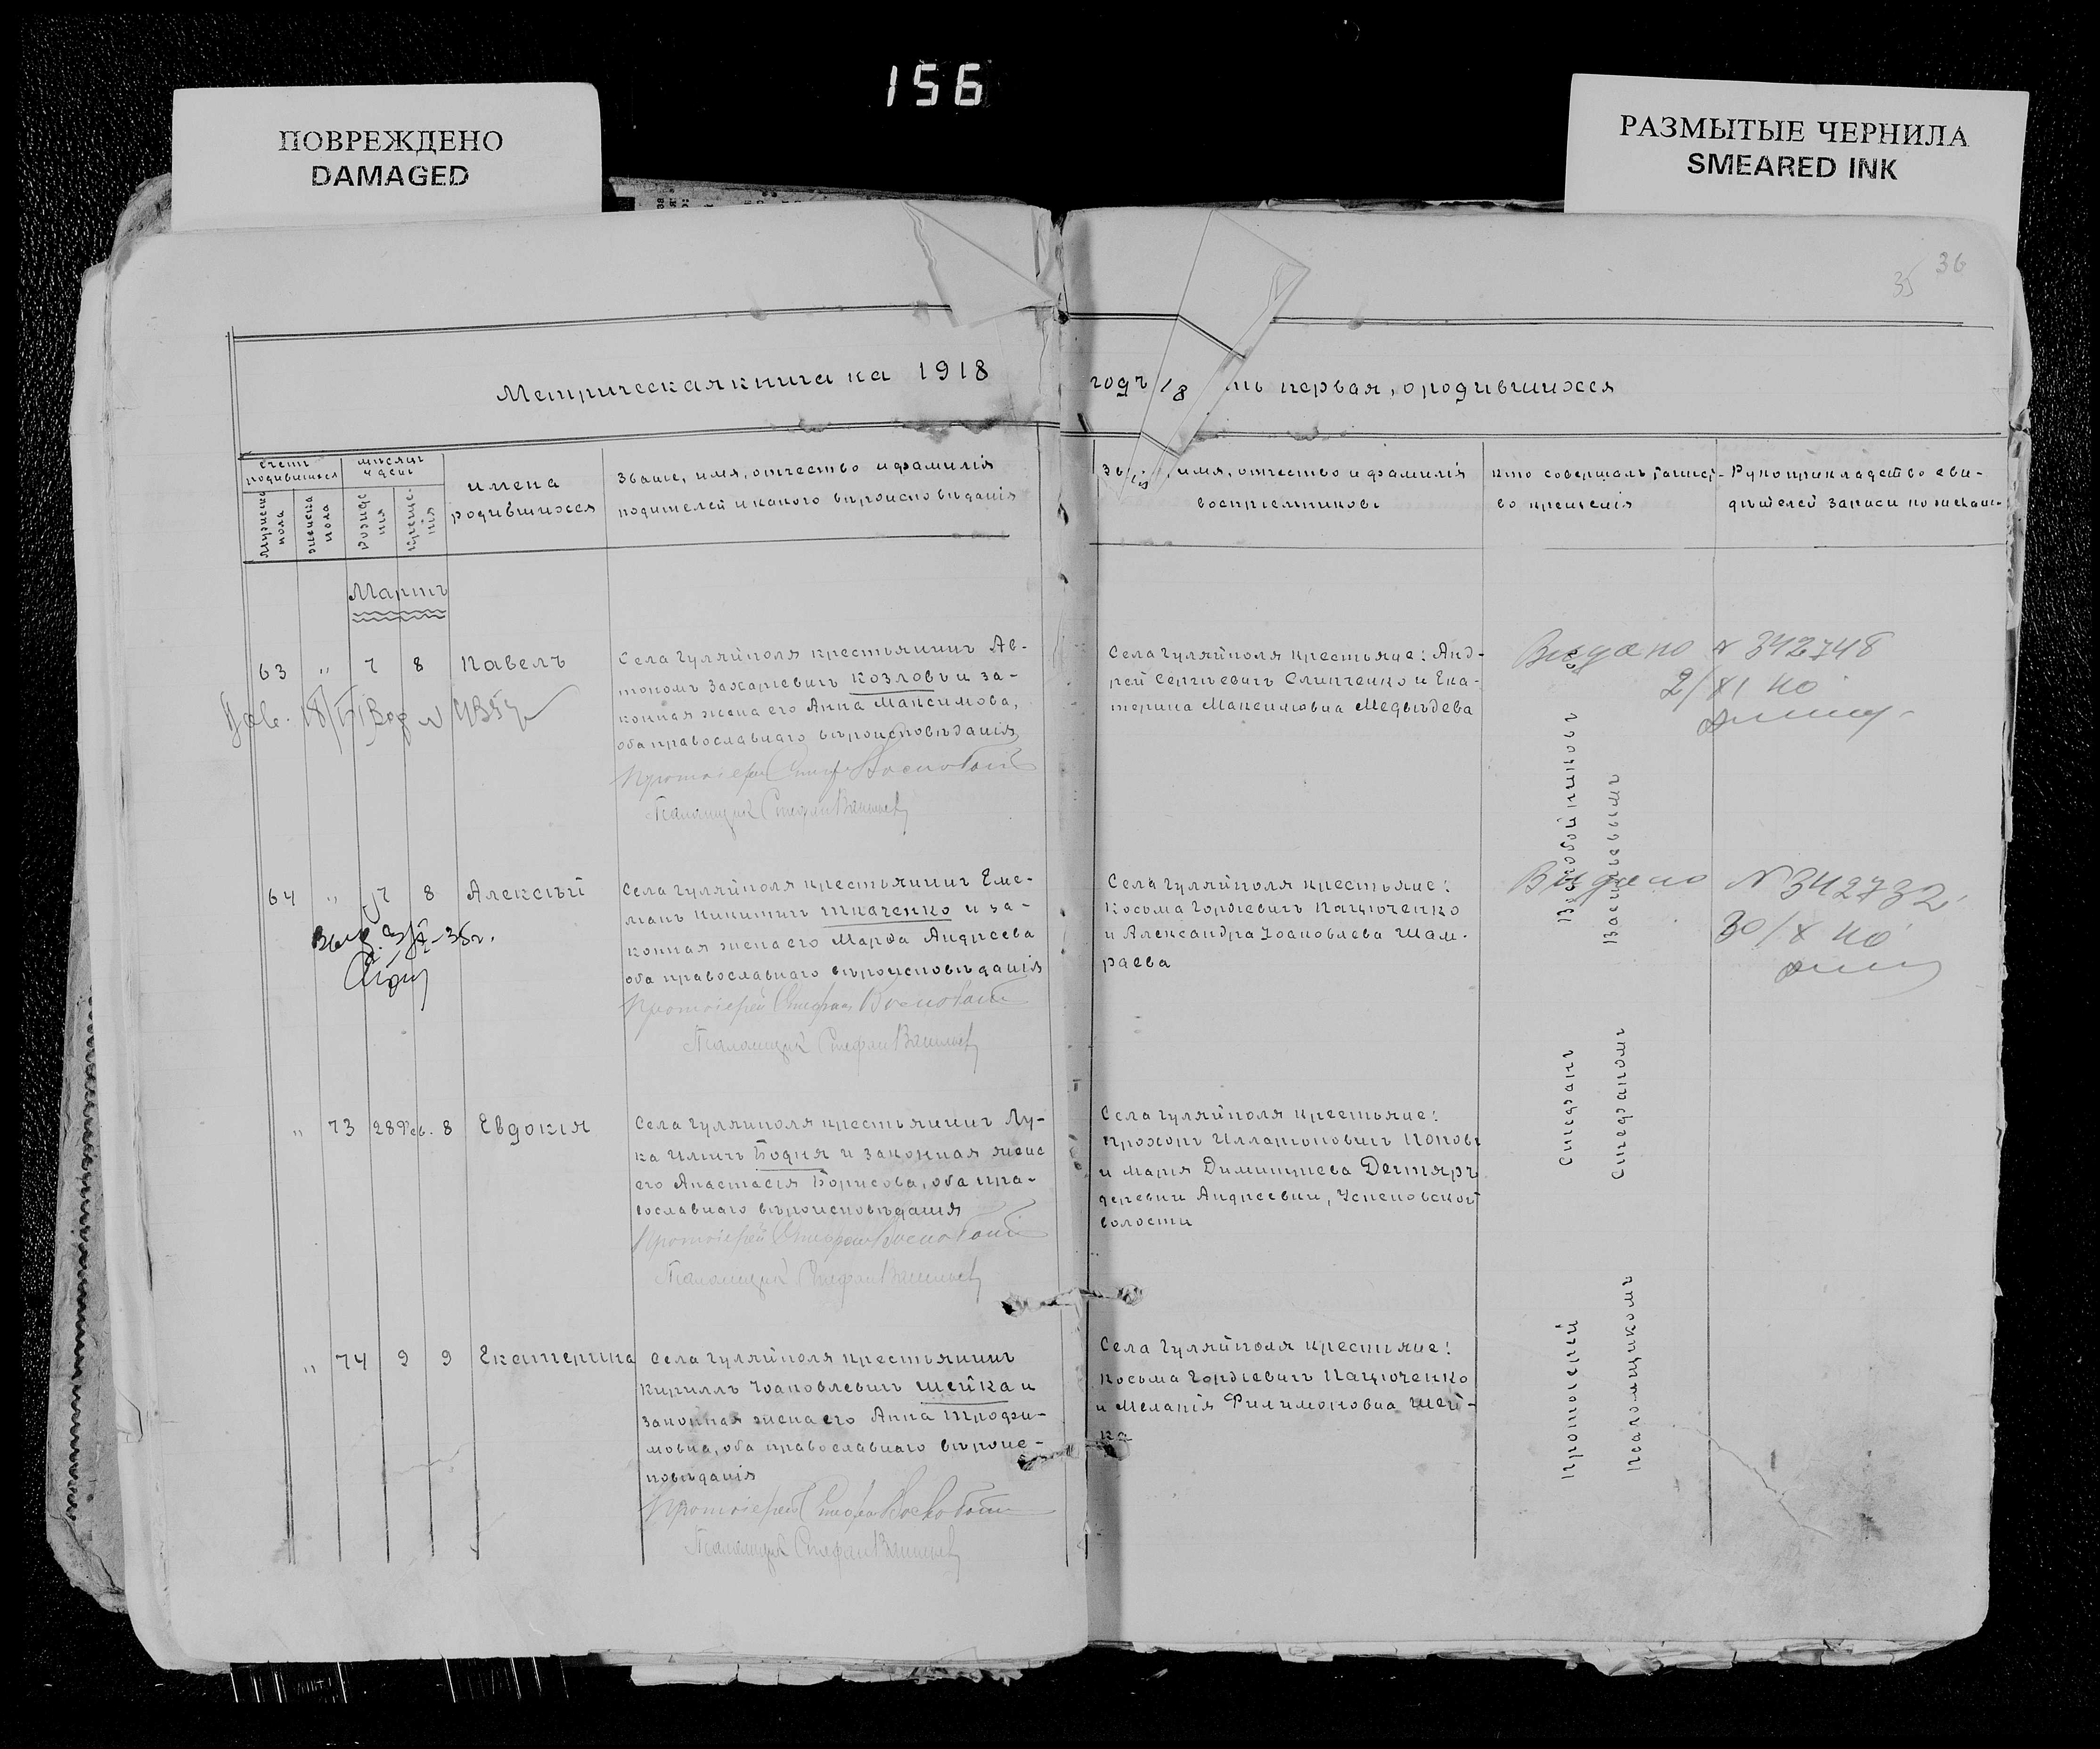 156
ПОВРЕЖДЕНО
DAMAGED
РАЗМЫТЫЕ ЧЕРНИЛА
SMEARED INK
35 36
Метрическая книга на 1918
годъ 18 ть первая, о родившихся
счетъ родившихся
мѣсяцъ и день
мужеска пола
женска пола
рожде-
нія
креще-
нія
имена
родившихся
Званіе, имя, отчество и фамилія
родителей и какого вѣроисповѣданія
имя, отчество и фамилія
воспріемниковъ
кто совершалъ таинст-
во крещенія
Рукоприкладство сви-
дѣтелей записи по желан-
Мартъ
63 " 7 8 Павелъ
Села Гуляйполя крестьянинъ Ав-
тономъ Захаріевичъ Козловъ и за-
конная жена его Анна Максимова,
оба православнаго вѣроисповѣданія
Протоіерей Стеф. Воскобой
Псаломщик Стефан Васильев
Села Гуляйполя крестьяне: Анд-
рей Сергіевичъ Слипченко и Ека-
терина Максимовна Медвѣдева
Видано № 342748
2/XI 40
64 " 7 8 Алексѣй
35г.
Села Гуляйполя крестьянинъ Еме-
ліанъ Никитичъ Ткаченко и за-
конная жена его Марфа Андреева
оба православнаго вѣроисповѣданія
Протоіерей Стефан Воскобой
Псаломщик Стефан Васильев
Села Гуляйполя крестьяне:
Косьма Гордіевичъ Пацюченко
и Александра Іоаковлева Шам-
раева
Видано № 342732
30/X 40
" 73 28 Фев. 8 Евдокія
Села Гуляйполя крестьянинъ Лу-
ка Ильичъ Бодня и законная жена
его Анастасія Борисова, оба пра-
вославнаго вѣроисповѣданія
Протоіерей Стефан Воскобой
Псаломщик Стефан Васильев
Села Гуляйполя крестьяне:
Прохоръ Илларіоновичъ Поповъ
и Марія Димитріева Дегтярь
деревни Андреевки, Успеновской
волости
" 74 9 9 Екатерина
Села Гуляйполя крестьянинъ
Кириллъ Іоаковлевичъ Шейка и
законная жена его Анна Трофи-
мовна, оба православнаго вѣроис-
повѣданія
Протоіерей Стефан Воскобой
Псаломщик Стефан Васильев
Села Гуляйполя крестьяне:
Косьма Гордіевичъ Пацюченко
и Меланія Филимоновна Шей-
ка
Протоіерей Стефанъ Воскобойниковъ
Псаломщикомъ Стефаномъ Васильевымъ